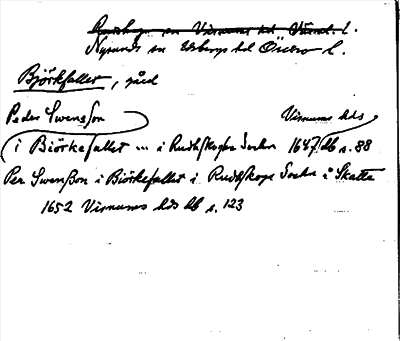 Rudskoga sn Visnums hd Värml. l.
Nysunds sn Edsbergs hd Örebro l.
Björkfallet, gård
Peder Swensson Visnums hds
i Biörkefallet ... i Rudhskogha Sochn 1647 db s. 88
Per Swenßon i Biörkefallet i Rudhskoga Sochn i Skatte
1652 Visnums hds db s. 123